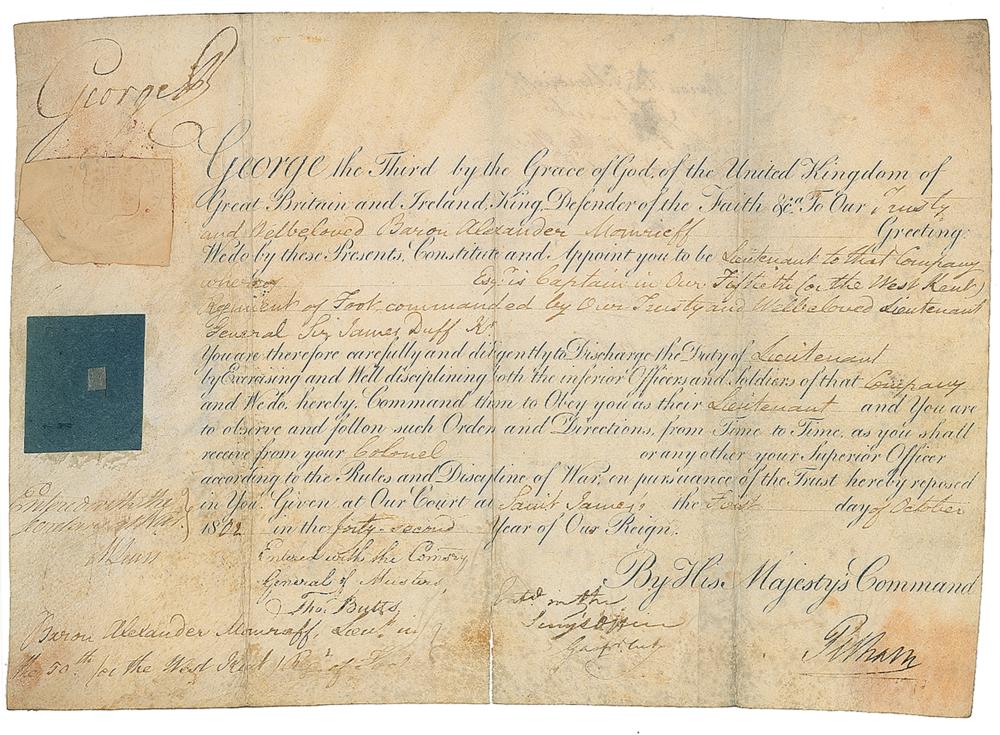 George R
George the Third by the Grace of God, of the United Kingdom of
Great Britain and Ireland, King, Defender of the Faith &ca. To Our Trusty
and Welbeloved Baron Alexander Greeting:
We do by these Presents, Constitute and Appoint you to be Lieutenant to that Company
whereof Esqr. is Captain in Our Fiftieth (or the West Kent)
Regiment of Foot commanded by Our Trusty and Welbeloved Lieutenant
General Sir James Duff Kt.
You are therefore carefully and diligently to Discharge the Duty of Lieutenant
by Exercising and Well disciplining both the inferior Officers and Soldiers of that Company
and We do hereby Command them to Obey you as their Lieutenant and You are
to observe and follow such Orders and Directions, from Time to Time, as you shall
receive from your Colonel or any other your Superior Officer
according to the Rules and Discipline of War, in pursuance of the Trust hereby reposed
in You. Given at Our Court at Saint James's the First day of October
1802 in the forty-second Year of Our Reign.
By His Majesty's Command
Pelham
Entered with the
Secretary at War
Entered with the Comsry
General of Musters
Thos. Butts
Baron Alexander Lieut. in
the 50th (or the West Kent) Regt. of Foot